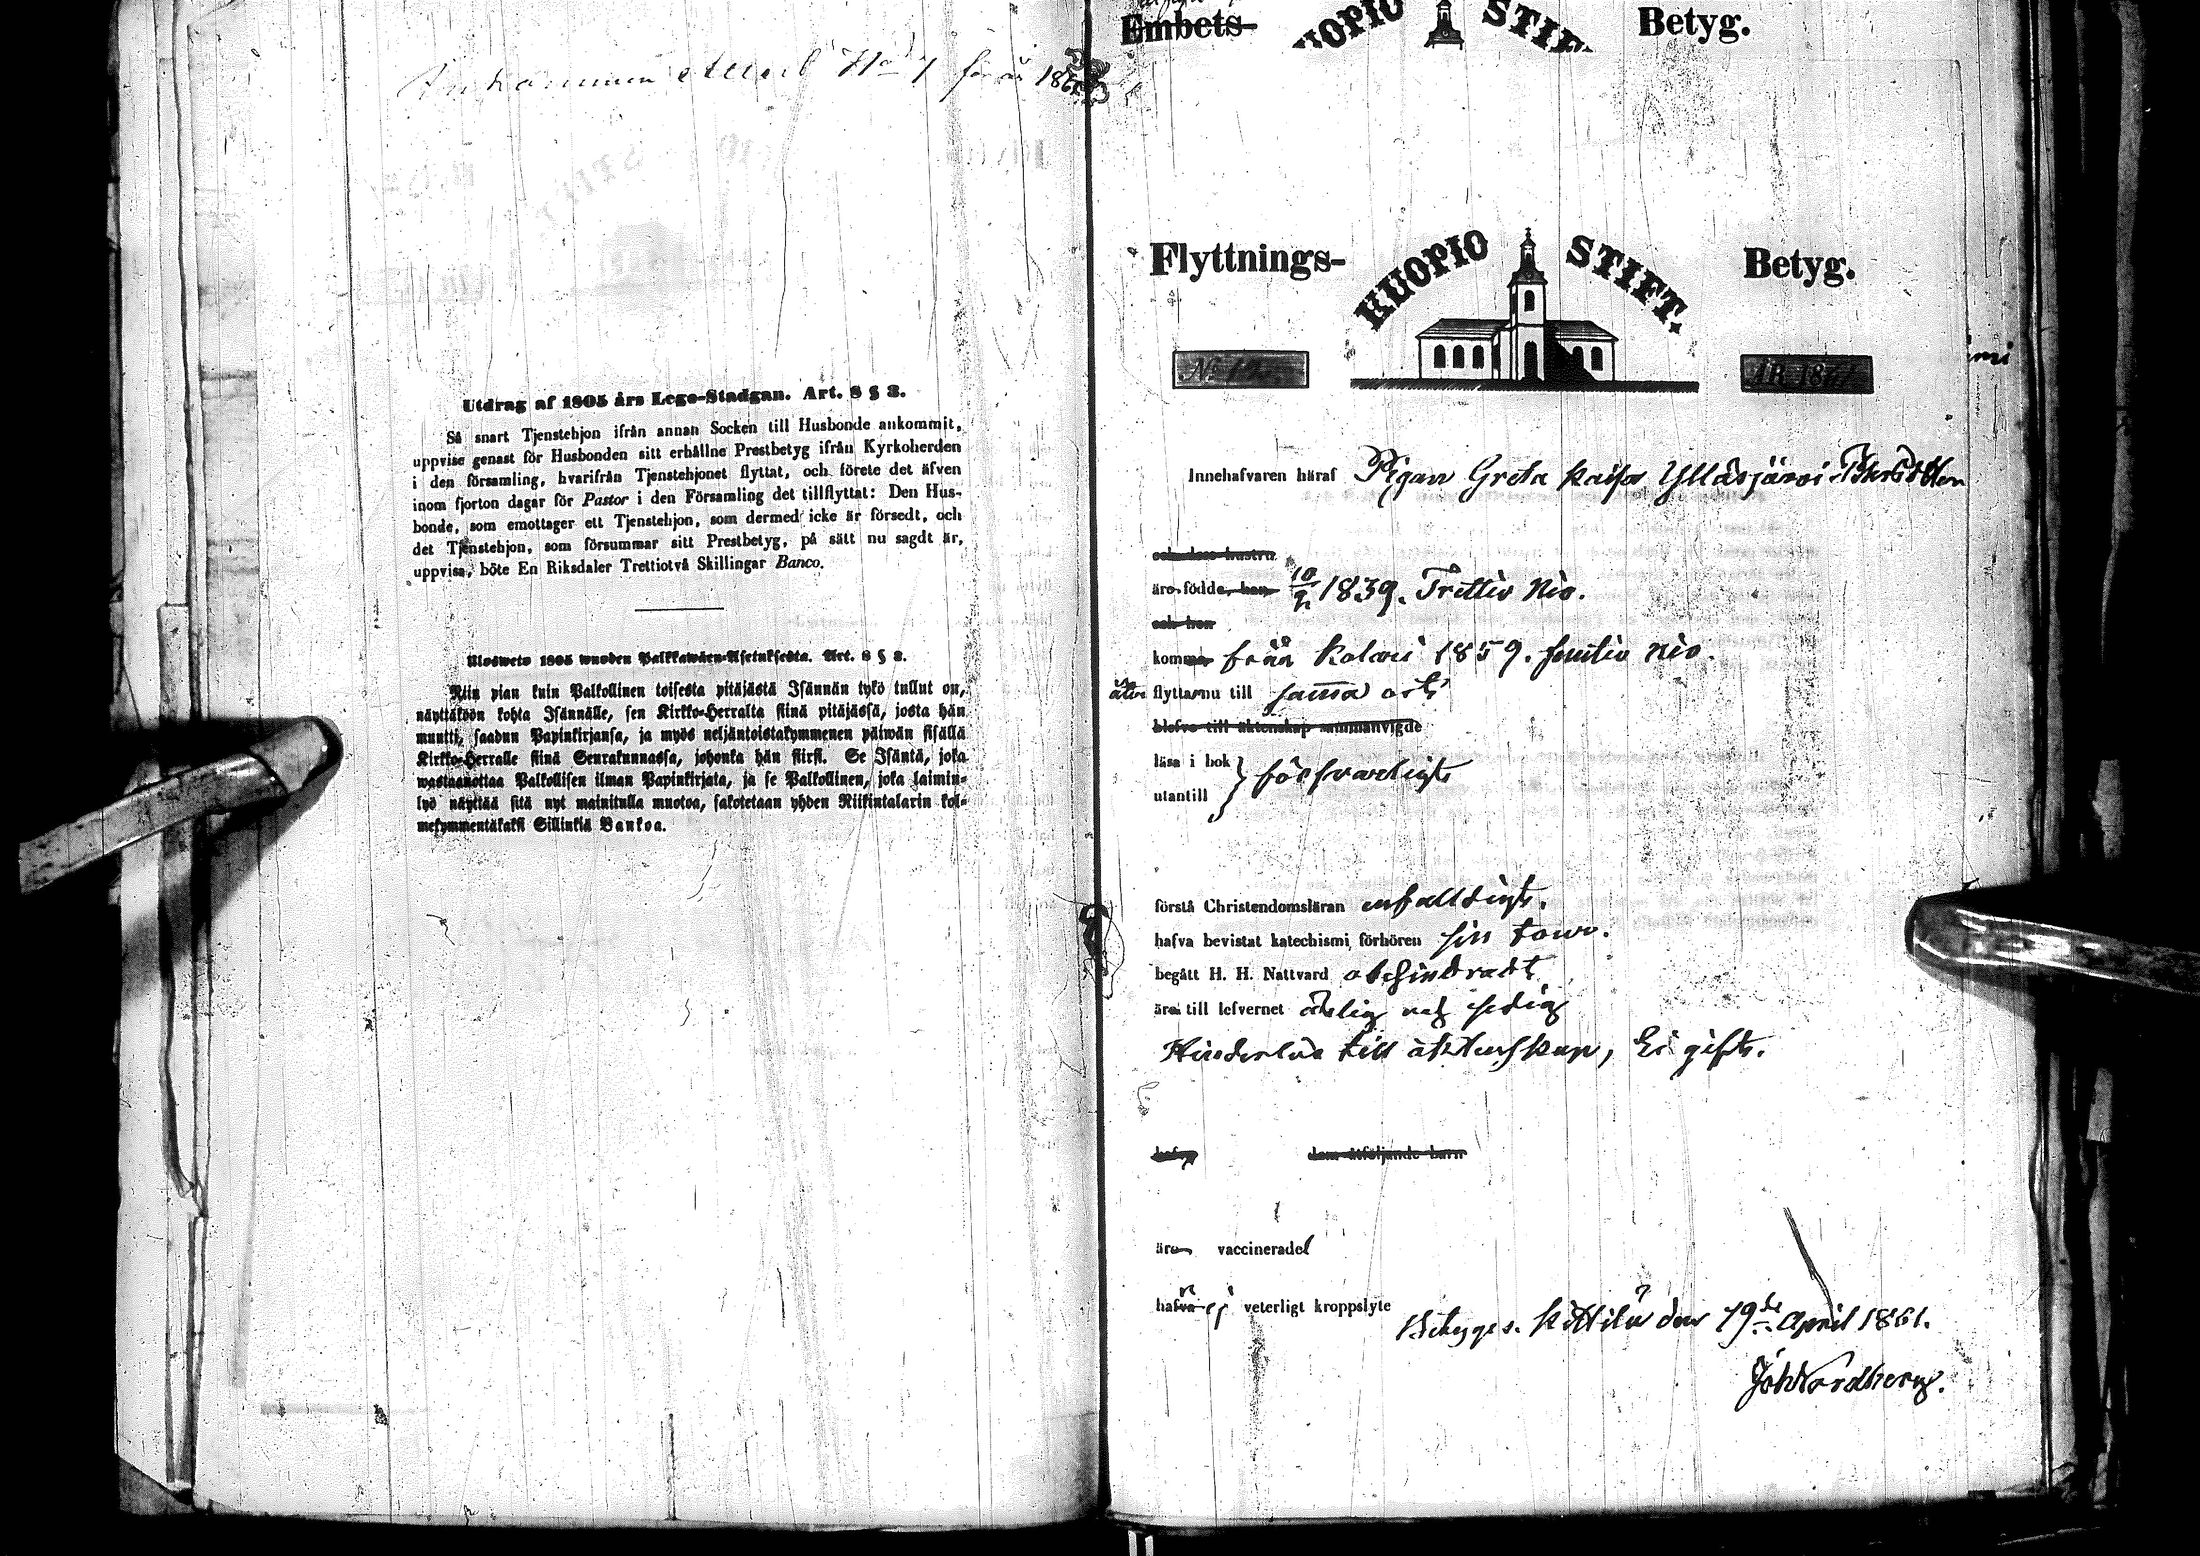 Inkommen attest No 7 för år 186
Utdrag af 1805 års Lego-Stadgan. Art. 8 § 3.
Så snart Tjenstehjon ifrån annan Socken till Husbonde ankommit,
uppvise genast för Husbonden sitt erhållne Prestbetyg ifrån Kyrkoherden
i den församling, hvarifrån Tjenstehjonet flyttat, och förete det äfven
inom fjorton dagar för Pastor i den Församling det tillflyttat: Den Hus-
bonde, som emottager ett Tjenstehjon, som dermed icke är försedt, och
det Tjenstehjon, som försummar sitt Prestbetyg, på sätt nu sagdt är,
uppvisa, böte En Riksdaler Trettiotvå Skillingar Banco.
Ulosweto 1805 wuoden Palkkawäen-Asetuksesta. Art. 8 § 3.
Niin pian kuin Palkollinen toisesta pitäjästä Isännän tykö tullut on,
näyttäköön kohta Isännälle, sen Kirkko-Herralta siinä pitäjässä, josta hän
muutti, saadun Papinkirjansa, ja myös neljäntoistakymmenen päiwän sisällä
Kirkko-Herralle siinä Seurakunnassa, johonka hän siirsi. Se Isäntä, joka
wastaanottaa Palkollisen ilman Papinkirjata, ja se Palkollinen, joka laimin-
lyö näyttää sitä nyt mainitulla muotoa, sakotetaan yhden Riikintalarin kol-
mekymmentäkaksi Sillinkiä Bankoa.
Embets- KUOPIO STIFT. Betyg.
Flyttnings- KUOPIO STIFT. Betyg.
No ÅR 1861
Innehafvaren häraf Pigan Greta Kaisa Ylläsjärvi
och dess hustru
äro födde, han 10/9 1839. Trettio Nio.
och hon
komna från Kolari 1859. femtio nio.
åter flyttar nu till samma ort
blefvo till äktenskap sammanvigde
läsa i bok
utantill } försvarligt
förstå Christendomsläran enfalldigt.
hafva bevistat katechismi förhören sin tour.
begått H. H. Nattvard obehindradt
äro till lefvernet ärlig och sedig
Hinderlös till äktenskap, Ej gift.
hafva dem åtföljande barn
äro vaccinerade
hafva ej veterligt kroppslyte
Betygas. Kittilä den 19de April 1861.
Joh Nordberg.